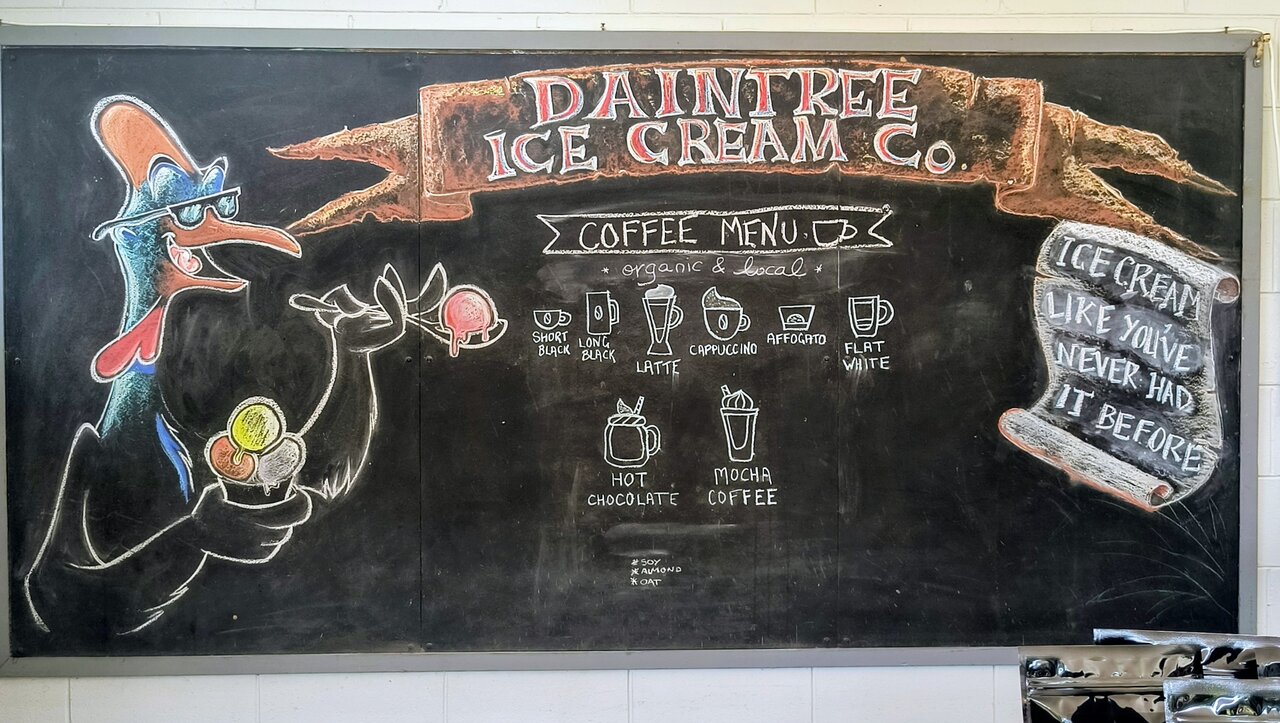 DAINTREE
ICE CREAM Co.
COFFEE MENU
* organic & local *
SHORT
BLACK
LONG
BLACK
LATTE
CAPPUCCINO
AFFOGATO
FLAT
WHITE
HOT
CHOCOLATE
MOCHA
COFFEE
* SOY
* ALMOND
* OAT
ICE CREAM
LIKE YOU'VE
NEVER HAD
IT BEFORE